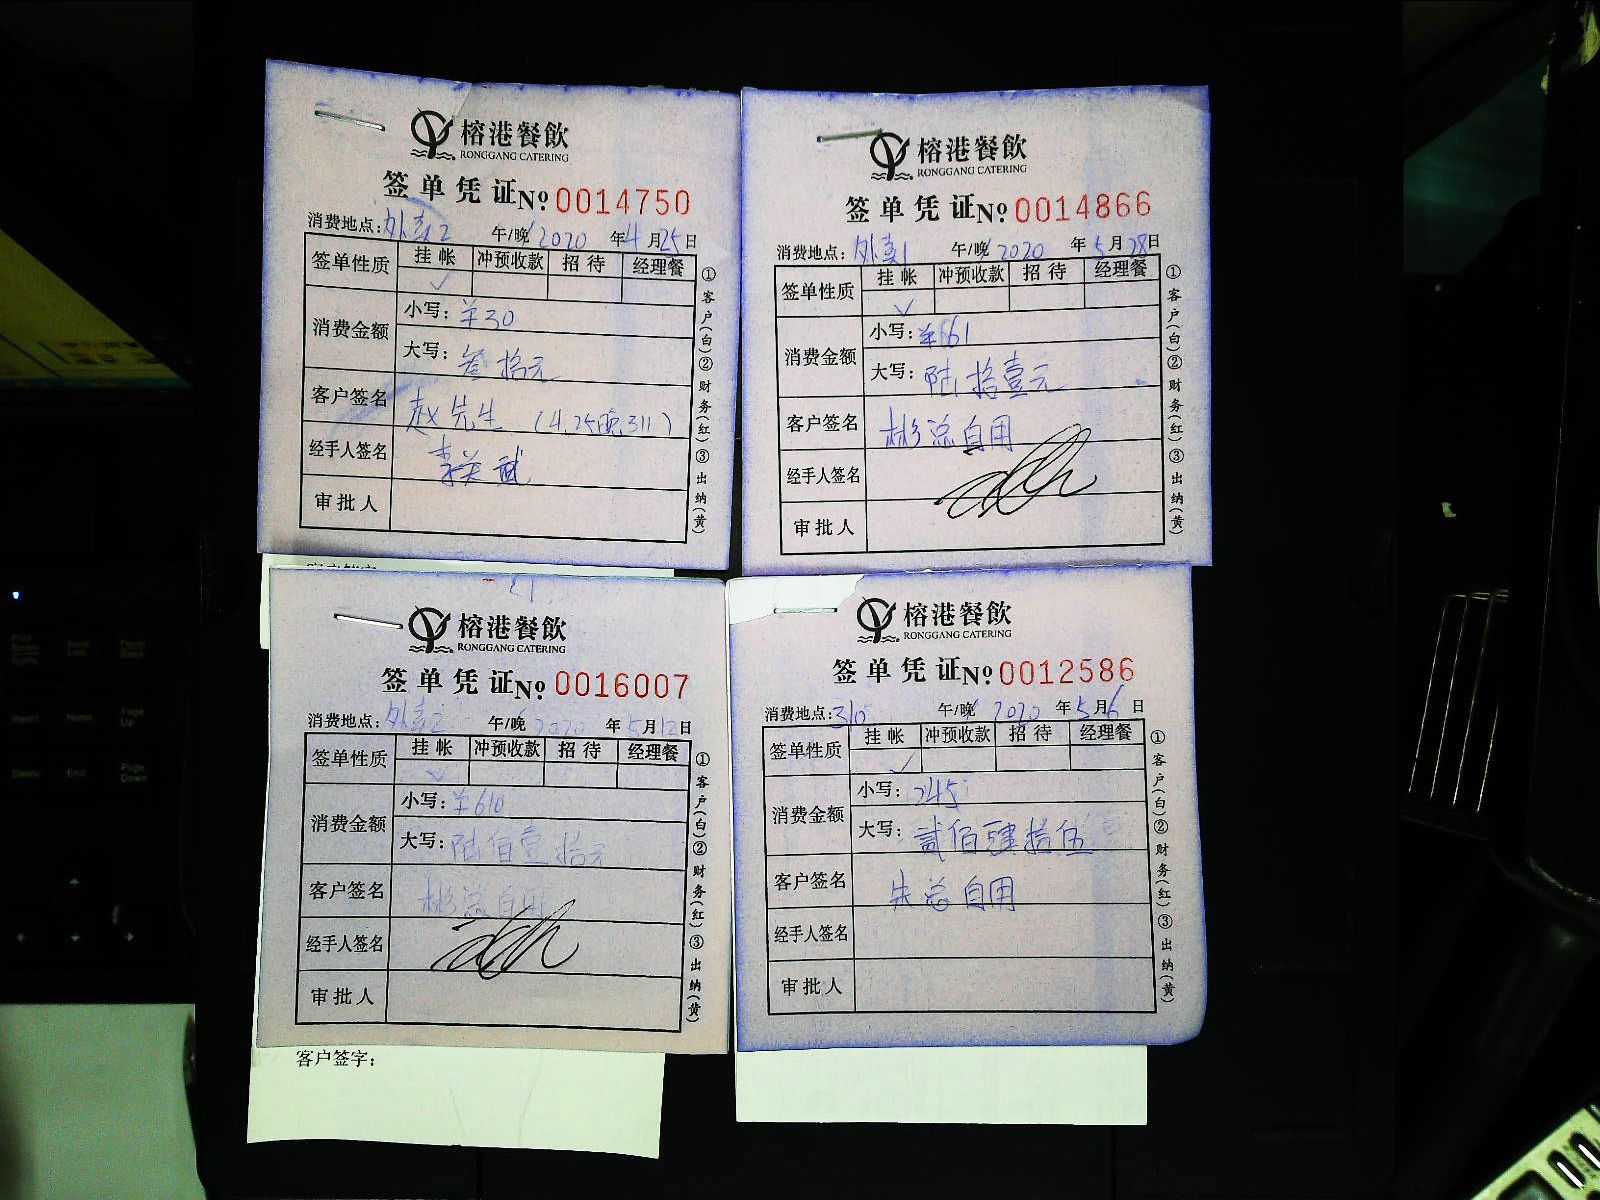 榕港餐飲
RONGGANG CATERING
签单凭证 No. 0014750
消费地点：外卖2 午/晚 2020年4月25日
签单性质 挂帐 冲预收款 招待 经理餐
✓
消费金额 小写：￥30
大写：叁拾元
客户签名 赵先生 (4.25晚311)
经手人签名
审批人
①客户(白)②财务(红)③出纳(黄)
榕港餐飲
RONGGANG CATERING
签单凭证 No. 0014866
消费地点：外卖1 午/晚 2020年5月28日
签单性质 挂帐 冲预收款 招待 经理餐
✓
消费金额 小写：
大写：陆拾壹元
客户签名 彬总自用
经手人签名
审批人
①客户(白)②财务(红)③出纳(黄)
榕港餐飲
RONGGANG CATERING
签单凭证 No. 0016007
消费地点：外卖2 午/晚 2020年5月12日
签单性质 挂帐 冲预收款 招待 经理餐
✓
消费金额 小写：￥610
大写：陆佰壹拾元
客户签名 彬总自用
经手人签名
审批人
①客户(白)②财务(红)③出纳(黄)
客户签字：
榕港餐飲
RONGGANG CATERING
签单凭证 No. 0012586
消费地点：310 午/晚 2020年5月6日
签单性质 挂帐 冲预收款 招待 经理餐
✓
消费金额 小写：245
大写：贰佰肆拾伍
客户签名 朱总自用
经手人签名
审批人
①客户(白)②财务(红)③出纳(黄)